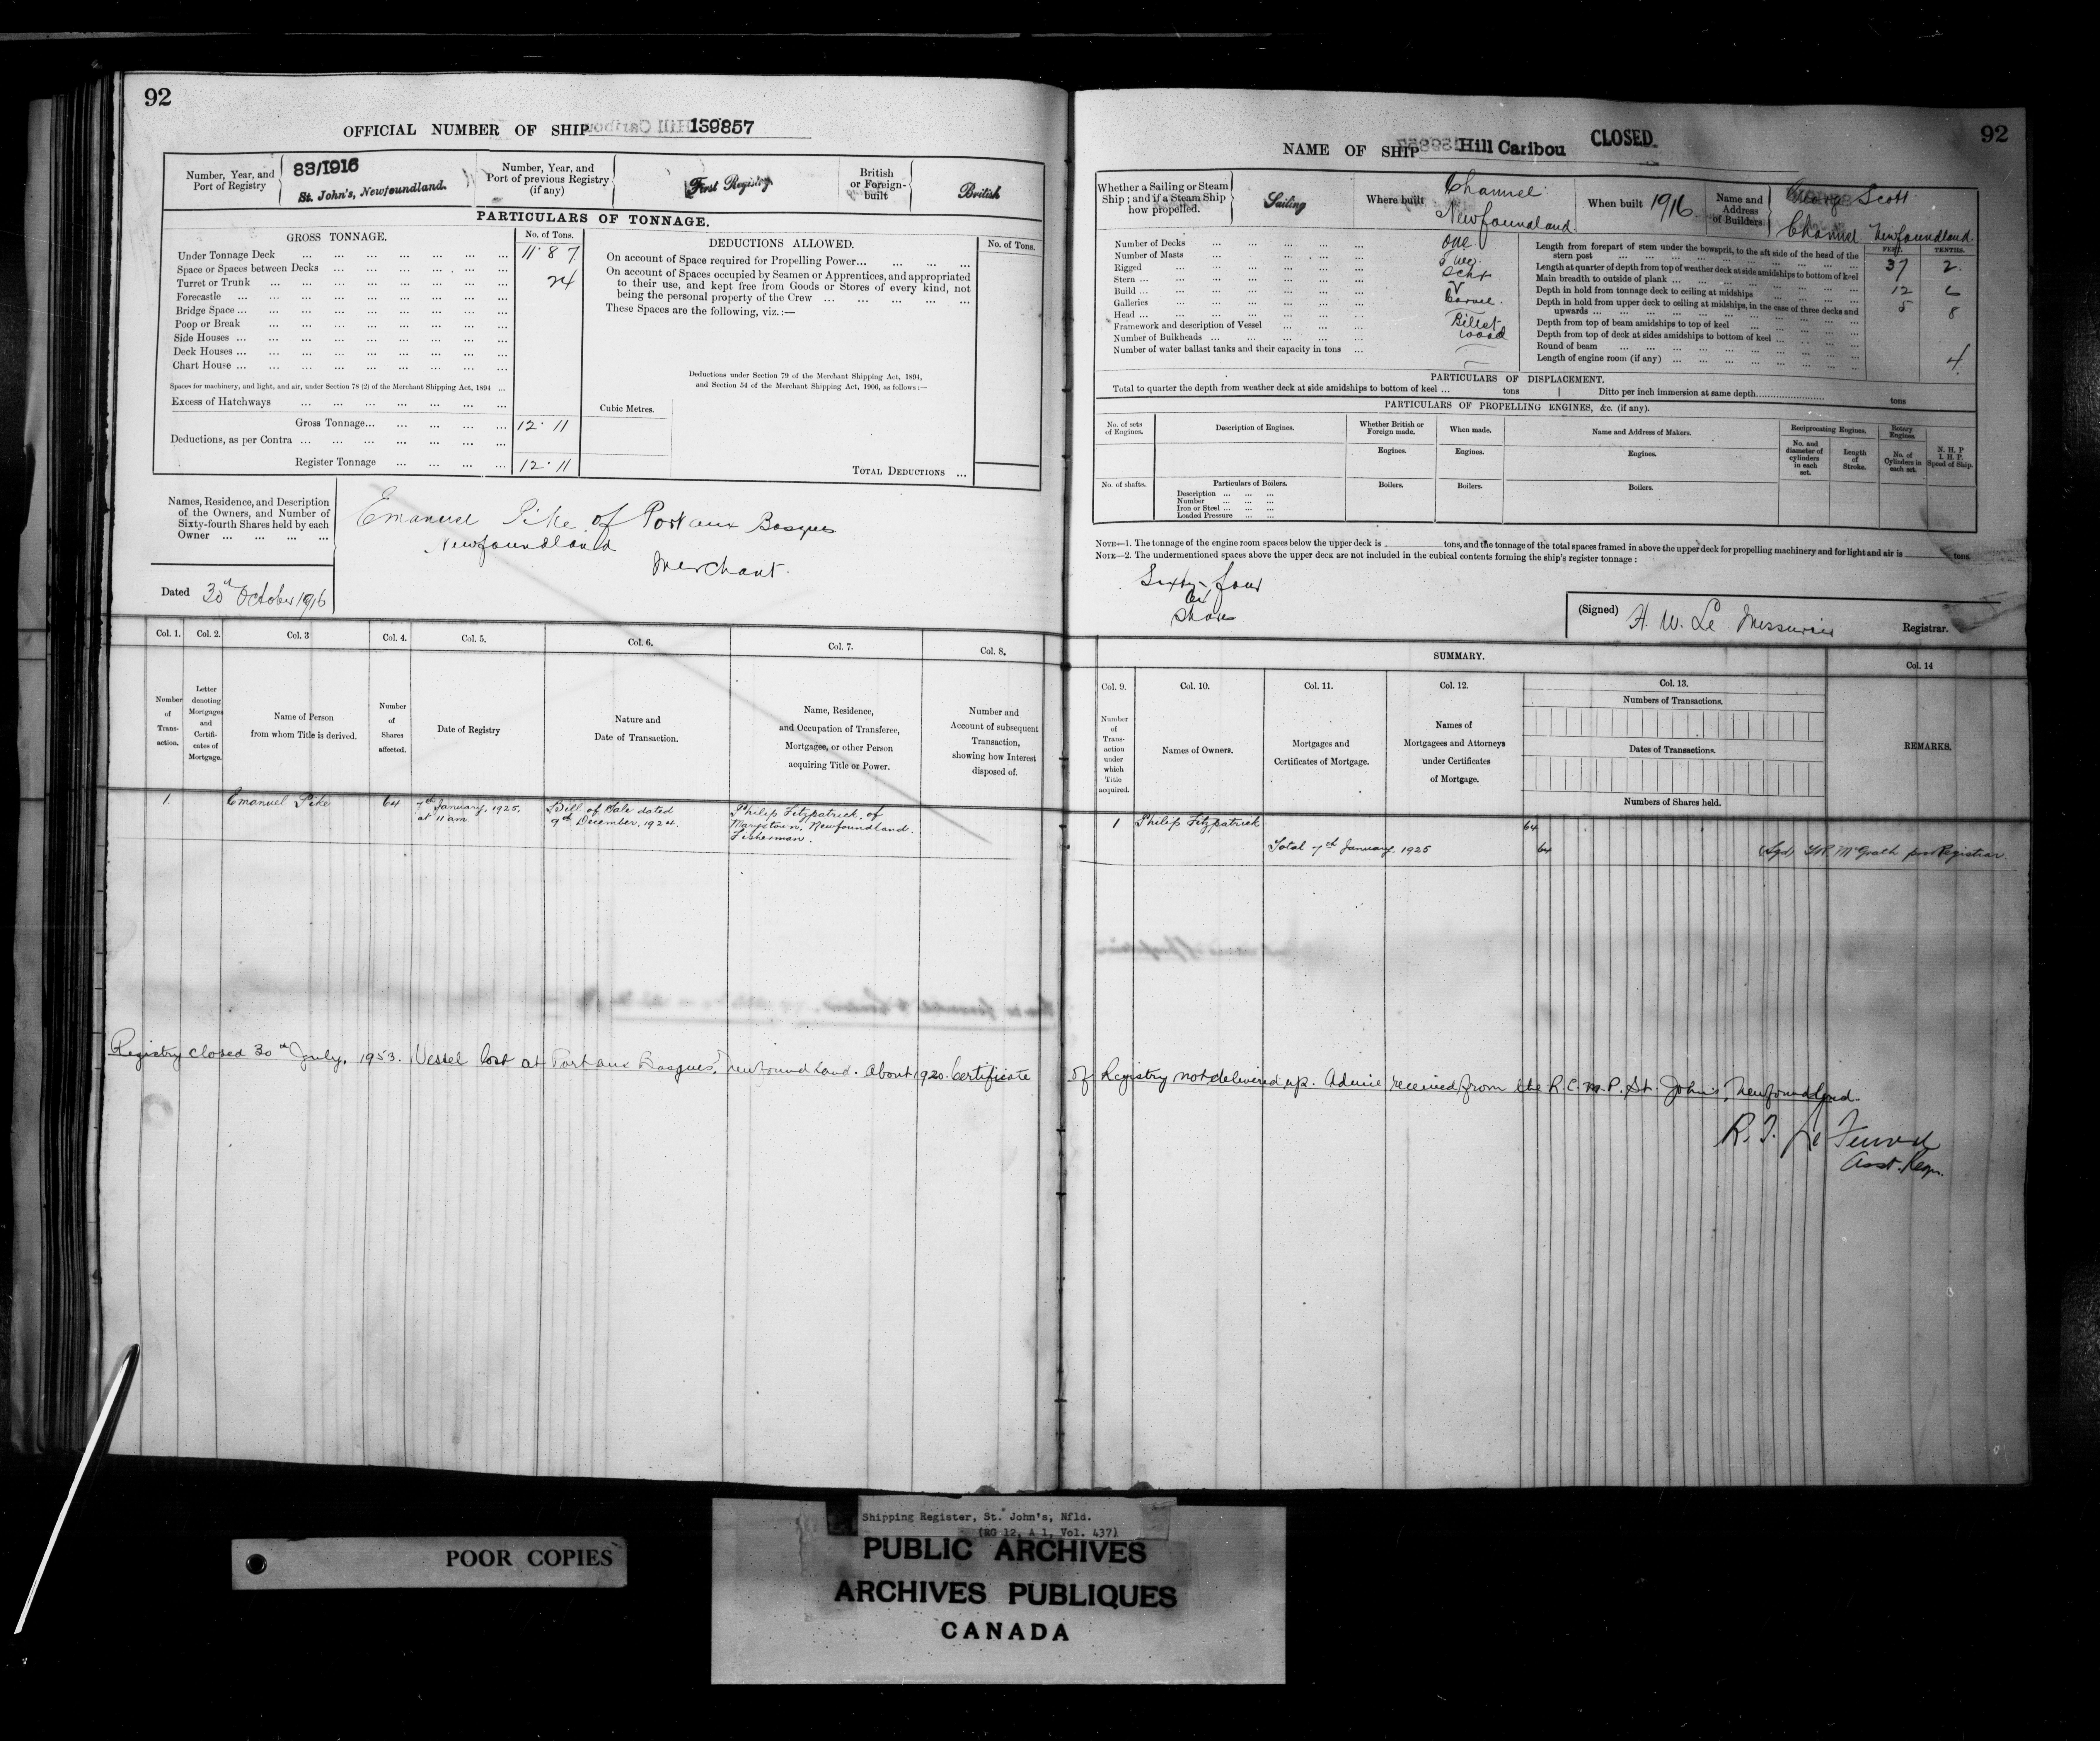 92
OFFICIAL NUMBER OF SHIP 139857
Number, Year, and Port of Registry
83/1916
St. John's, Newfoundland.
Number, Year, and Port of previous Registry (if any)
First Registry
British or Foreign-built
British
PARTICULARS OF TONNAGE.
GROSS TONNAGE.
No. of Tons.
Under Tonnage Deck 11.87
Space or Spaces between Decks
Turret or Trunk 24
Forecastle
Bridge Space
Poop or Break
Side Houses
Deck Houses
Chart House
Spaces for machinery, and light, and air, under Section 78 (2) of the Merchant Shipping Act, 1894
Excess of Hatchways
Gross Tonnage 12.11
Deductions, as per Contra
Register Tonnage 12.11
DEDUCTIONS ALLOWED.
No. of Tons.
On account of Space required for Propelling Power
On account of Spaces occupied by Seamen or Apprentices, and appropriated
to their use, and kept free from Goods or Stores of every kind, not
being the personal property of the Crew
These Spaces are the following, viz. :—
Deductions under Section 79 of the Merchant Shipping Act, 1894,
and Section 54 of the Merchant Shipping Act, 1906, as follows :—
Cubic Metres.
TOTAL DEDUCTIONS
Names, Residence, and Description
of the Owners, and Number of
Sixty-fourth Shares held by each
Owner
Emanuel Pike of Port aux Basques
Newfoundland
Merchant.
Dated 30th October 1916
Col. 1.
Number of Transaction.
Col. 2.
Letter denoting Mortgages and Certificates of Mortgage.
Col. 3
Name of Person from whom Title is derived.
Col. 4.
Number of Shares affected.
Col. 5.
Date of Registry
Col. 6.
Nature and Date of Transaction.
Col. 7.
Name, Residence, and Occupation of Transferee, Mortgagee, or other Person acquiring Title or Power.
Col. 8.
Number and Account of subsequent Transaction, showing how Interest disposed of.
1. Emanuel Pike 64
7th January, 1925, at 11 am
Bill of Sale dated 9th December, 1924.
Philip Fitzpatrick, of
Marystown, Newfoundland.
Fisherman.
Registry closed 30th July, 1953. Vessel lost at Port aux Basques, Newfoundland. About 1920. Certificate
92
NAME OF SHIP Hill Caribou CLOSED.
Whether a Sailing or Steam Ship ; and if a Steam Ship how propelled.
Sailing
Where built
Channel
Newfoundland.
When built 1916.
Name and Address of Builders
George Scott
Channel Newfoundland.
Number of Decks One
Number of Masts Two
Rigged Schr
Stern
Build Carvel.
Galleries
Head Billet
Framework and description of Vessel Wood
Number of Bulkheads
Number of water ballast tanks and their capacity in tons
FEET. TENTHS.
Length from forepart of stem under the bowsprit, to the aft side of the head of the stern post 37 2.
Length at quarter of depth from top of weather deck at side amidships to bottom of keel
Main breadth to outside of plank 12 6
Depth in hold from tonnage deck to ceiling at midships 5 8
Depth in hold from upper deck to ceiling at midships, in the case of three decks and upwards
Depth from top of beam amidships to top of keel
Depth from top of deck at sides amidships to bottom of keel
Round of beam 4
Length of engine room (if any)
PARTICULARS OF DISPLACEMENT.
Total to quarter the depth from weather deck at side amidships to bottom of keel ... tons
Ditto per inch immersion at same depth tons
PARTICULARS OF PROPELLING ENGINES, &c. (if any).
No. of sets of Engines.
Description of Engines.
Whether British or Foreign made.
When made.
Name and Address of Makers.
Reciprocating Engines.
Rotary Engines.
N. H. P
I. H. P.
Speed of Ship.
No. and diameter of cylinders in each set.
Length of Stroke.
No. of Cylinders in each set.
Engines.
Engines.
Engines.
No. of shafts.
Particulars of Boilers.
Description
Number
Iron or Steel
Loaded Pressure
Boilers.
Boilers.
Boilers.
NOTE—1. The tonnage of the engine room spaces below the upper deck is tons, and the tonnage of the total spaces framed in above the upper deck for propelling machinery and for light and air is tons.
NOTE—2. The undermentioned spaces above the upper deck are not included in the cubical contents forming the ship's register tonnage :
Sixty four
Shares
(Signed) H. W. Le Messurier Registrar.
SUMMARY.
Col. 9.
Number of Transaction under which Title acquired.
Col. 10.
Names of Owners.
Col. 11.
Mortgages and Certificates of Mortgage.
Col. 12.
Names of Mortgagees and Attorneys under Certificates of Mortgage.
Col. 13.
Numbers of Transactions.
Dates of Transactions.
Numbers of Shares held.
Col. 14
REMARKS.
1 Philip Fitzpatrick 64
Total 7th January, 1925 64 (Sgd) McGrath pro Registrar
of Registry not delivered up. Advice received from the R.C.M.P. St. John's, Newfoundland.
Asst. Regr.
POOR COPIES
Shipping Register, St. John's, Nfld.
(RG 12, A 1, Vol. 437)
PUBLIC ARCHIVES
ARCHIVES PUBLIQUES
CANADA